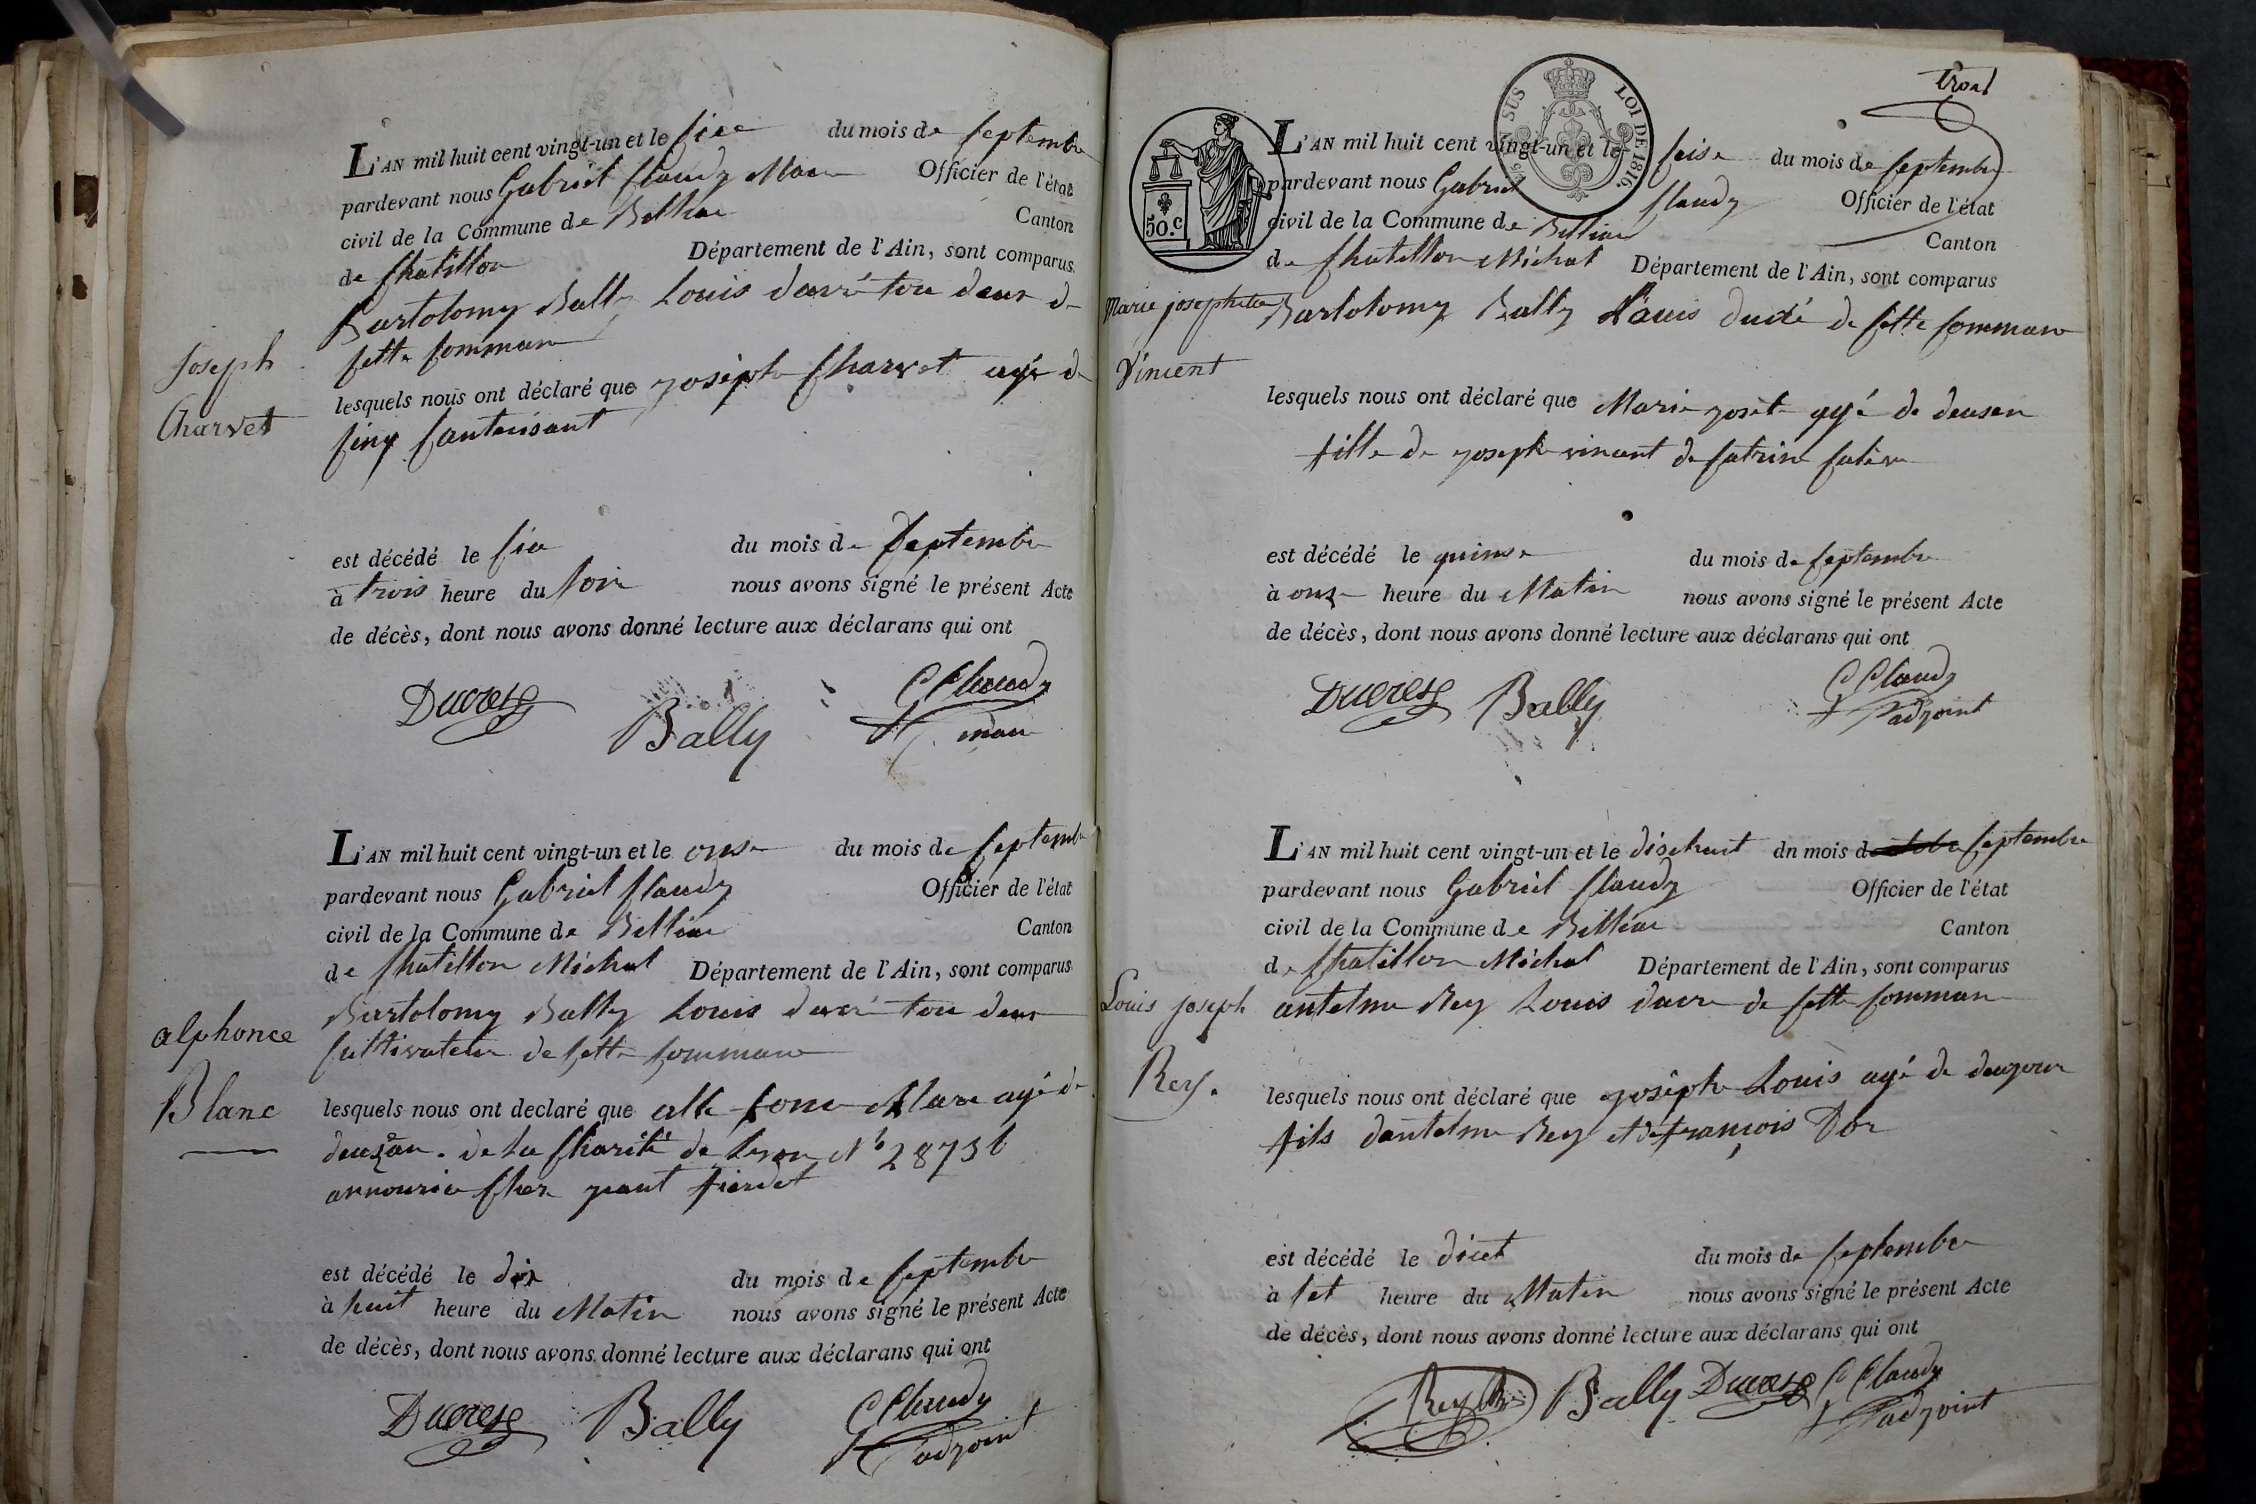 L'AN mil huit cent vingt-un et le sice du mois de septembre
pardevant nous Gabriel Claudy Officier de l'état
civil de la Commune de Billiac Canton
de Chatillon Département de l'Ain, sont comparus
Bartolomy Bally Louis tou deux de
sette Commune
Joseph
Charvet
lesquels nous ont déclaré que joseph Charvet agé de
sinq
est décédé le sice du mois de septembre
à trois heure du soir nous avons signé le présent Acte
de décès, dont nous avons donné lecture aux déclarans qui ont
Ducret Bally G Claudy
L'AN mil huit cent vingt-un et le onse du mois de septembre
pardevant nous Gabriel Claudy Officier de l'état
civil de la Commune de Billiac Canton
de Chatillon Michal Département de l'Ain, sont comparus
Bartolomy Bally Louis tou deux
Cultivateur de sette Commune
alphonce
Blanc
lesquels nous ont declaré que agé de
deuzan. de la Charité de
Cher
est décédé le dix du mois de septembre
à huit heure du Matin nous avons signé le présent Acte
de décès, dont nous avons donné lecture aux déclarans qui ont
Ducret Bally G Claudy
adjoint
trois
EN SUS LOI DE 1816.
50.c
L'AN mil huit cent vingt-un et le seise du mois de septembre
pardevant nous Gabriel Claudy Officier de l'état
civil de la Commune de Billiac Canton
de Chatillon Michal Département de l'Ain, sont comparus
Marie josephte
Vincent
Bartolomy Bally de sette Commune
lesquels nous ont déclaré que Marie josete agé de deusan
fille de joseph vincent de Catrine
est décédé le quinse du mois de septembre
à onze heure du Matin nous avons signé le présent Acte
de décès, dont nous avons donné lecture aux déclarans qui ont
Ducret Bally G Claudy
adjoint
L'AN mil huit cent vingt-un et le disehuit dn mois de septembre
pardevant nous Gabriel Claudy Officier de l'état
civil de la Commune de Billiac Canton
de Chatillon Michal Département de l'Ain, sont comparus
Louis joseph
Rey.
antelme Rey Louis de sette Commune
lesquels nous ont déclaré que joseph Louis agé de
fils dantelme Rey et de françois
est décédé le diset du mois de septembre
à set heure du Matin nous avons signé le présent Acte
de décès, dont nous avons donné lecture aux déclarans qui ont
Rey Bally Ducret G Claudy
adjoint